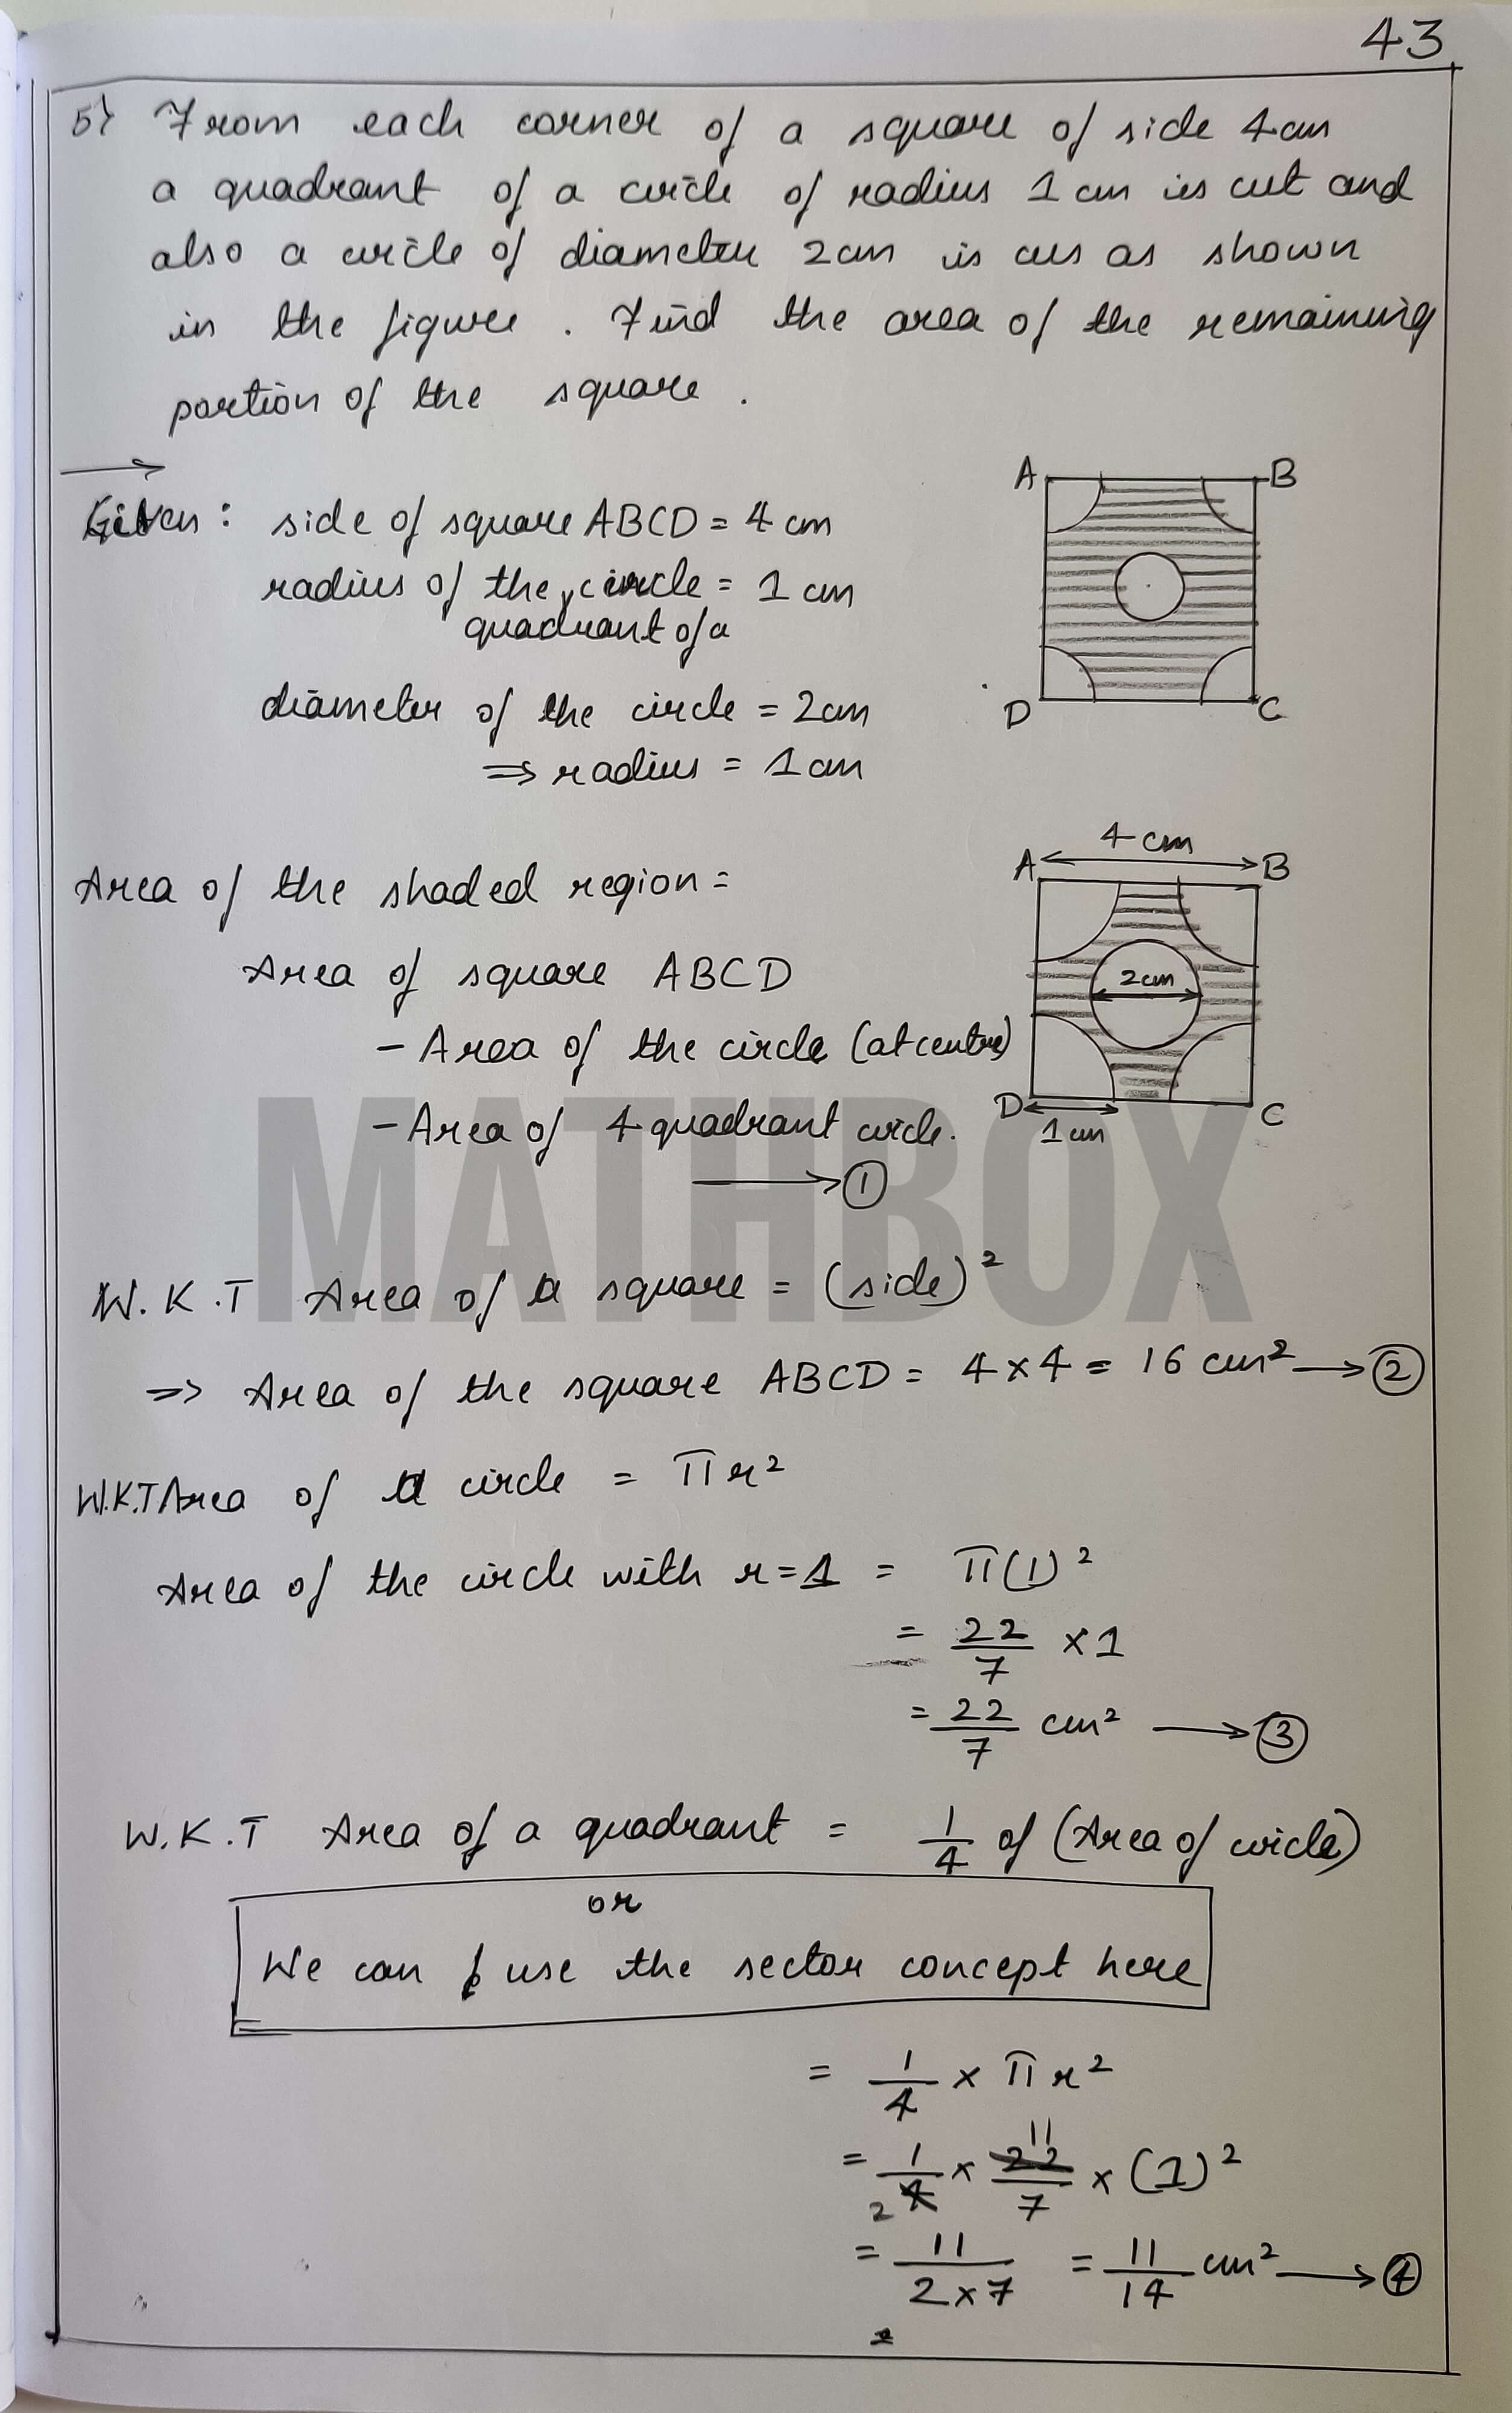 43
5) From each corner of a square of side 4cm
a quadrant of a circle of radius 1 cm is cut and
also a circle of diameter 2cm is cus as shown
in the figure. Find the area of the remaining
portion of the square.
Given: side of square ABCD = 4 cm
radius of the circle = 1 cm
quadrant of a
diameter of the circle = 2cm
⇒ radius = 1cm
A B
D C
Area of the shaded region =
Area of square ABCD
- Area of the circle (at centre)
- Area of 4 quadrant circle.
→ ①
4 cm
A B
2cm
D C
1 cm
MATHBOX
W.K.T Area of a square = (side)²
⇒ Area of the square ABCD = 4×4 = 16 cm² → ②
W.K.T Area of a circle = πr²
Area of the circle with r=1 = π(1)²
= 22/7 ×1
= 22/7 cm² → ③
W.K.T Area of a quadrant = 1/4 of (Area of circle)
or
We can use the sector concept here
= 1/4 × πr²
11
= 1/4 × 22/7 × (1)²
2
= 11/2×7 = 11/14 cm² → ④